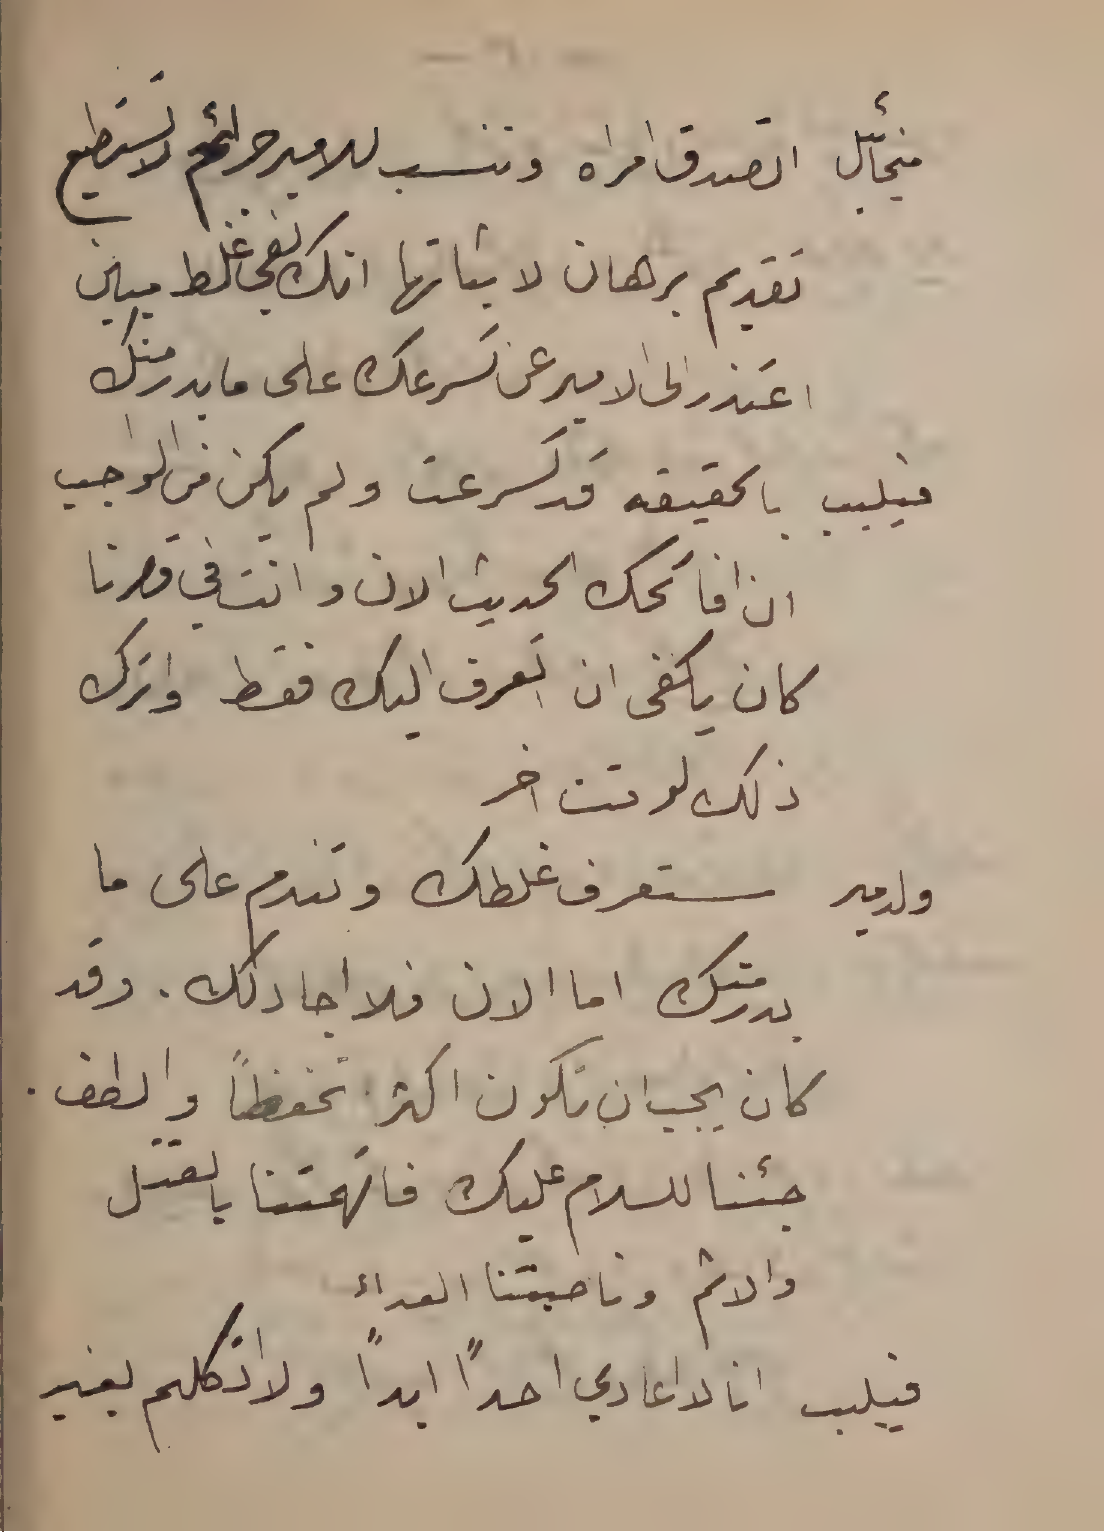 ميخائيل اتصدق امراه وتنسب للامير جرائم لا تستطيع
تقديم برهان لاثباتها انك لفي غلط مبين
اعتذر الى الامير عن تسرعك على ما بدر منك
فيليب بالحقيقه قد تسرعت ولم يكن من الواجب
ان افاتحك الحديث الان وانت في قصرنا
كان يكفي ان اتعرف اليك فقط واترك
ذلك لوقت اخر
ولدمير ستعرف غلطك وتندم على ما
بدر منك اما الان فلا اجادلك . وقد
كان يجب ان تكون اكثر تحفظاً والطف .
جئنا للسلام عليك فاتهمتنا بالقتل
والاثم وناصبتنا العداء
فيليب انا لا اعادي احداً ابداً ولا اتكلم بغير